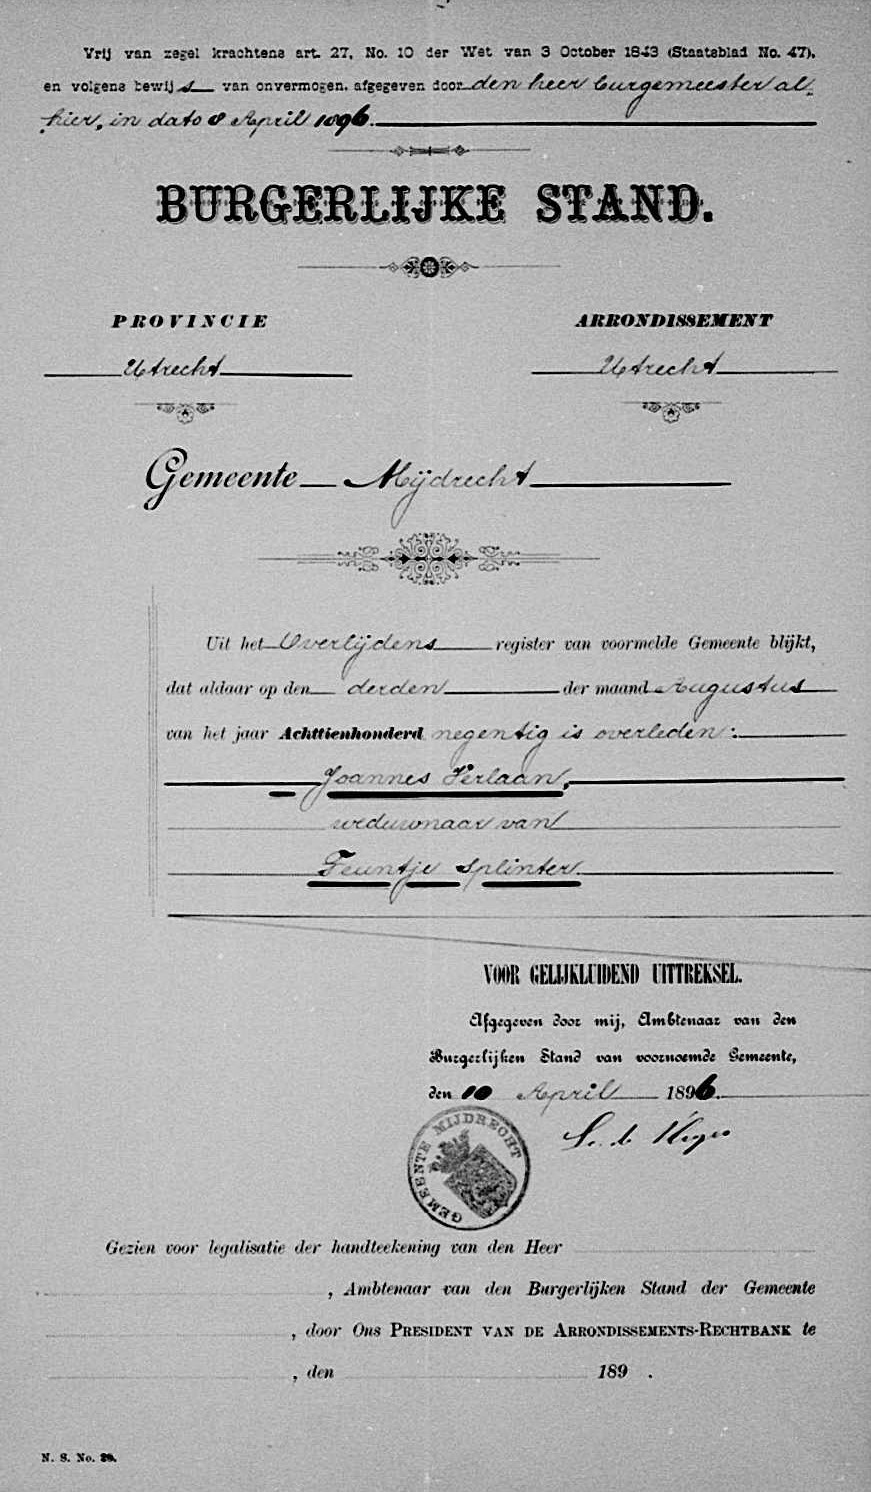 Vrij van zegel krachtens art. 27, No. 10 der Wet van 3 October 1843 (Staatsblad No. 47),
en volgens bewijs van onvermogen, afgegeven door den heer burgemeester al-
hier, in dato 8 April 1896.
BURGERLIJKE STAND.
PROVINCIE ARRONDISSEMENT
Utrecht Utrecht
Gemeente Mijdrecht
Uit het Overlijdens register van voormelde Gemeente blijkt,
dat aldaar op den derden der maand Augustus
van het jaar Achttienhonderd negentig is overleden:
Joannes Verlaan,
weduwnaar van
Teuntje Splinter.
VOOR GELIJKLUIDEND UITTREKSEL.
Afgegeven door mij, Ambtenaar van den
Burgerlijken Stand van voornoemde Gemeente,
den 10 April 1896.
GEMEENTE MIJDRECHT
Gezien voor legalisatie der handteekening van den Heer
, Ambtenaar van den Burgerlijken Stand der Gemeente
, door Ons PRESIDENT VAN DE ARRONDISSEMENTS-RECHTBANK te
, den 189 .
N. S. No.